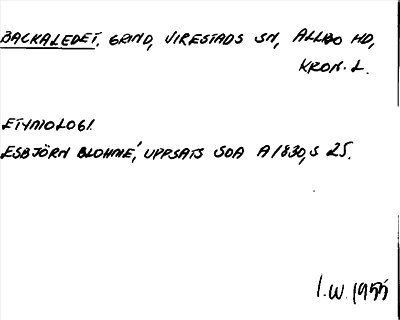 BACKALEDET, GRIND, VIRESTADS SN, ALLBO HD,
KRON. L.
ETYMOLOGI.
ESBJÖRN BLOHMÉ, UPPSATS SOA A 1830, S 25.
I.W. 1955